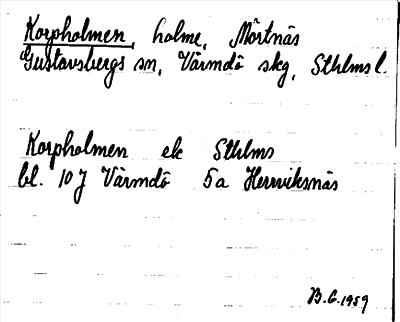 Korpholmen, holme, Mörtnäs
Gustavsbergs sn, Värmdö skg, Sthlms l.
Korpholmen ek Sthlms
bl. 10J Värmdö 5a Herrviksnäs
B.G. 1959